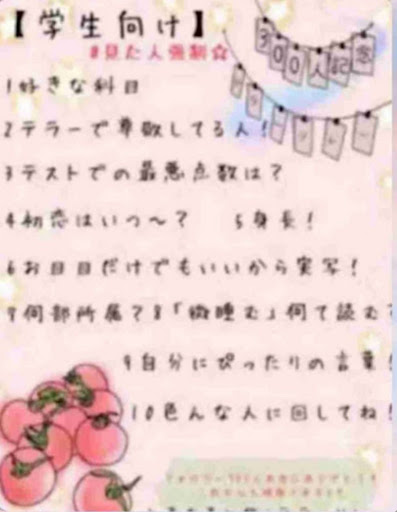 【学生向け】
#見た人強制☆
300人記念
1好きな科目
2テラーで尊敬してる人!
3テストでの最悪点数は?
4初恋はいつ〜? 5身長!
6お目目だけでもいいから実写!
7何部所属?8「微睡む」何て読む?
9自分にぴったりの言葉!
10色んな人に回してね!